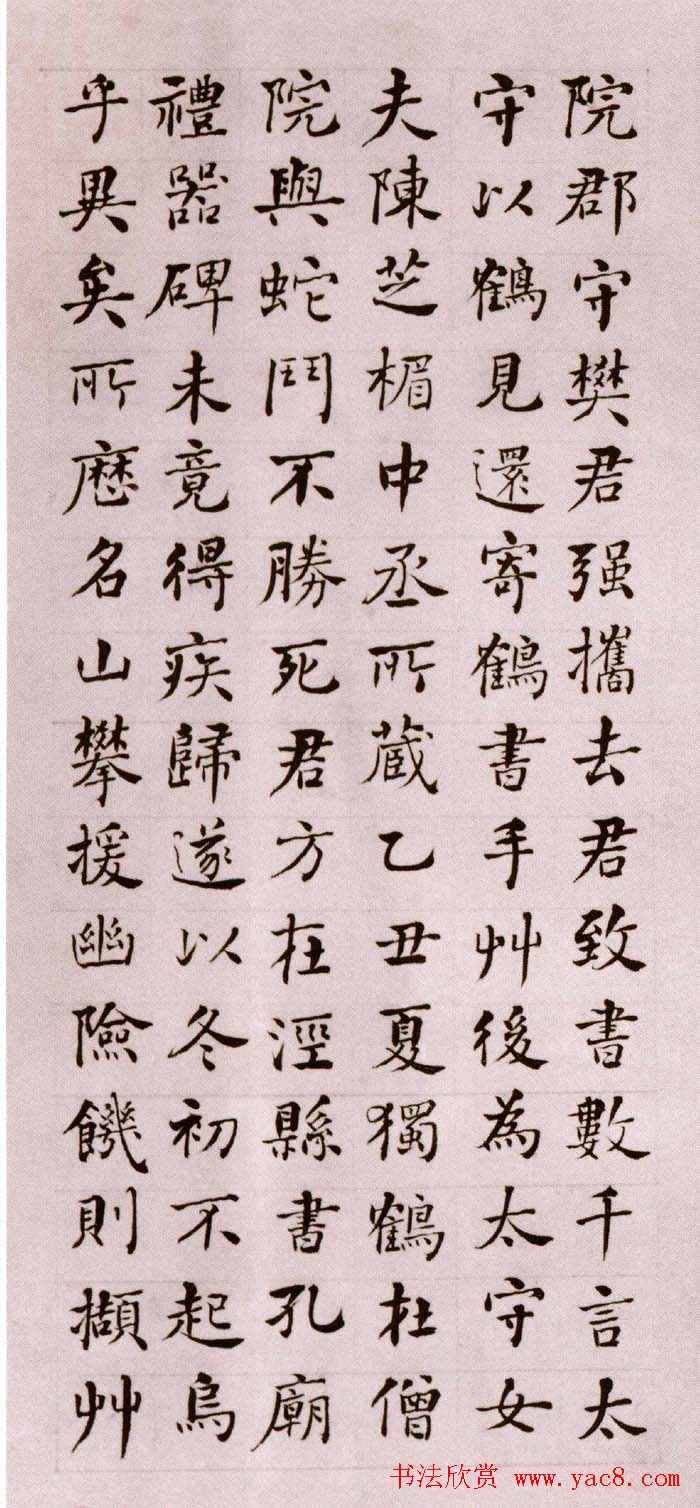 院郡守樊君强攜去君致書數千言太
守以鶴見還寄鶴書手艸後為太守女
夫陳芝楣中丞所蔵乙丑夏獨鶴在僧
院與蛇鬥不勝死君方在涇縣書孔廟
禮器碑未竟得疾歸遂以冬初不起烏
乎異矣所歷名山攀援幽險饑則擷艸
书法欣赏 www.yac8.com